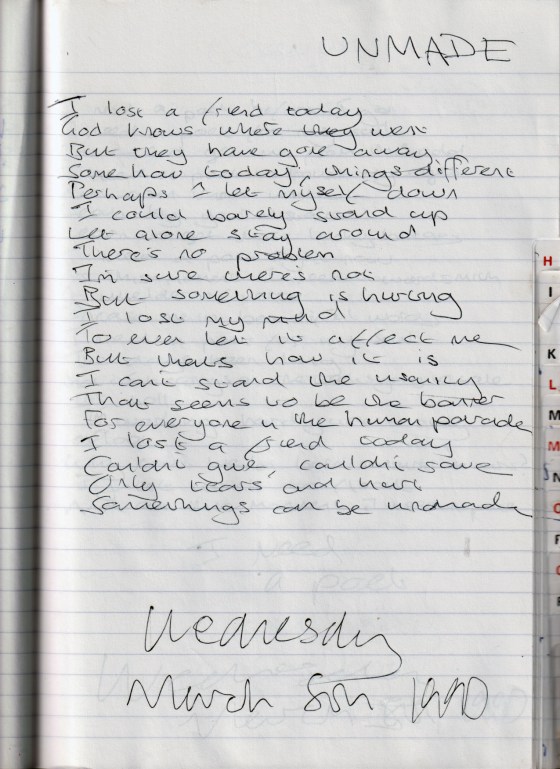 UNMADE
I lost a friend today
God knows where they went
But they have gone away
Somehow today, things different
Perhaps I let myself down
I could barely stand up
Let alone stay around
There's no problem
I'm sure there's not
But something is hurting
I lost my mind
To ever let it affect me
But thats how it is
I can't stand the
That seems to be the banner
For everyone in the human parade
I lost a friend today
Couldn't give, couldn't save
Only tears and hurt
Somethings can be unmade
Wednesday
March 1990
H
I
K
L
M
M
N
O
P